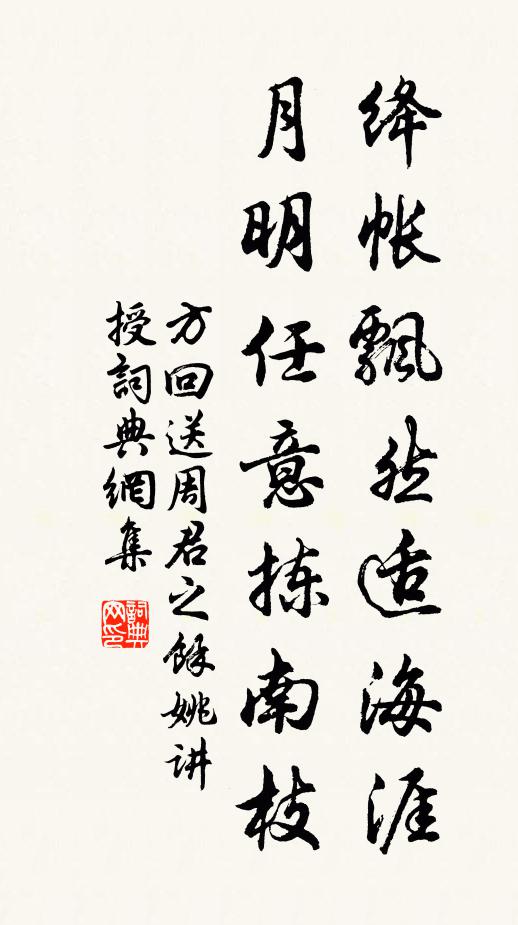 绛帐飘然适海涯
月明任意拣南枝
方回送周君之馀姚讲
授詞典網集
詞典网印